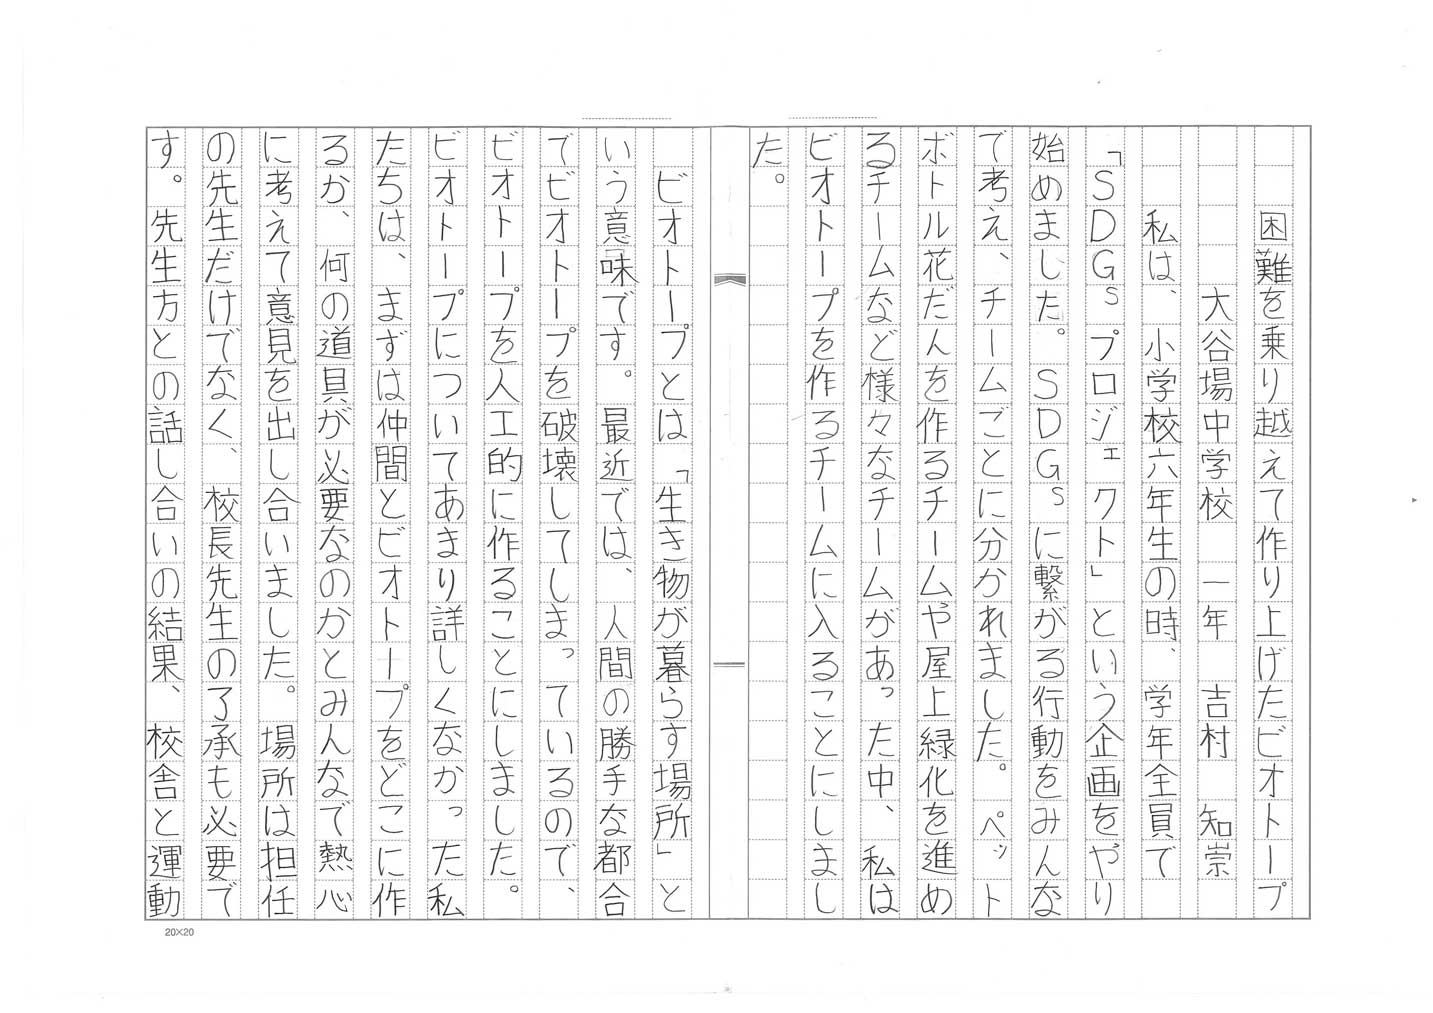 困難を乗り越えて作り上げたビオトープ
大谷場中学校 一年 吉村 知崇
私は、小学校六年生の時、学年全員で
「SDGsプロジェクト」という企画をやり
始めました。SDGsに繋がる行動をみんな
で考え、チームごとに分かれました。ペット
ボトル花だんを作るチームや屋上緑化を進め
るチームなど様々なチームがあった中、私は
ビオトープを作るチームに入ることにしまし
た。
ビオトープとは「生き物が暮らす場所」と
いう意味です。最近では、人間の勝手な都合
でビオトープを破壊してしまっているので、
ビオトープを人工的に作ることにしました。
ビオトープについてあまり詳しくなかった私
たちは、まずは仲間とビオトープをどこに作
るか、何の道具が必要なのかとみんなで熱心
に考えて意見を出し合いました。場所は担任
の先生だけでなく、校長先生の了承も必要で
す。先生方との話し合いの結果、校舎と運動
20×20